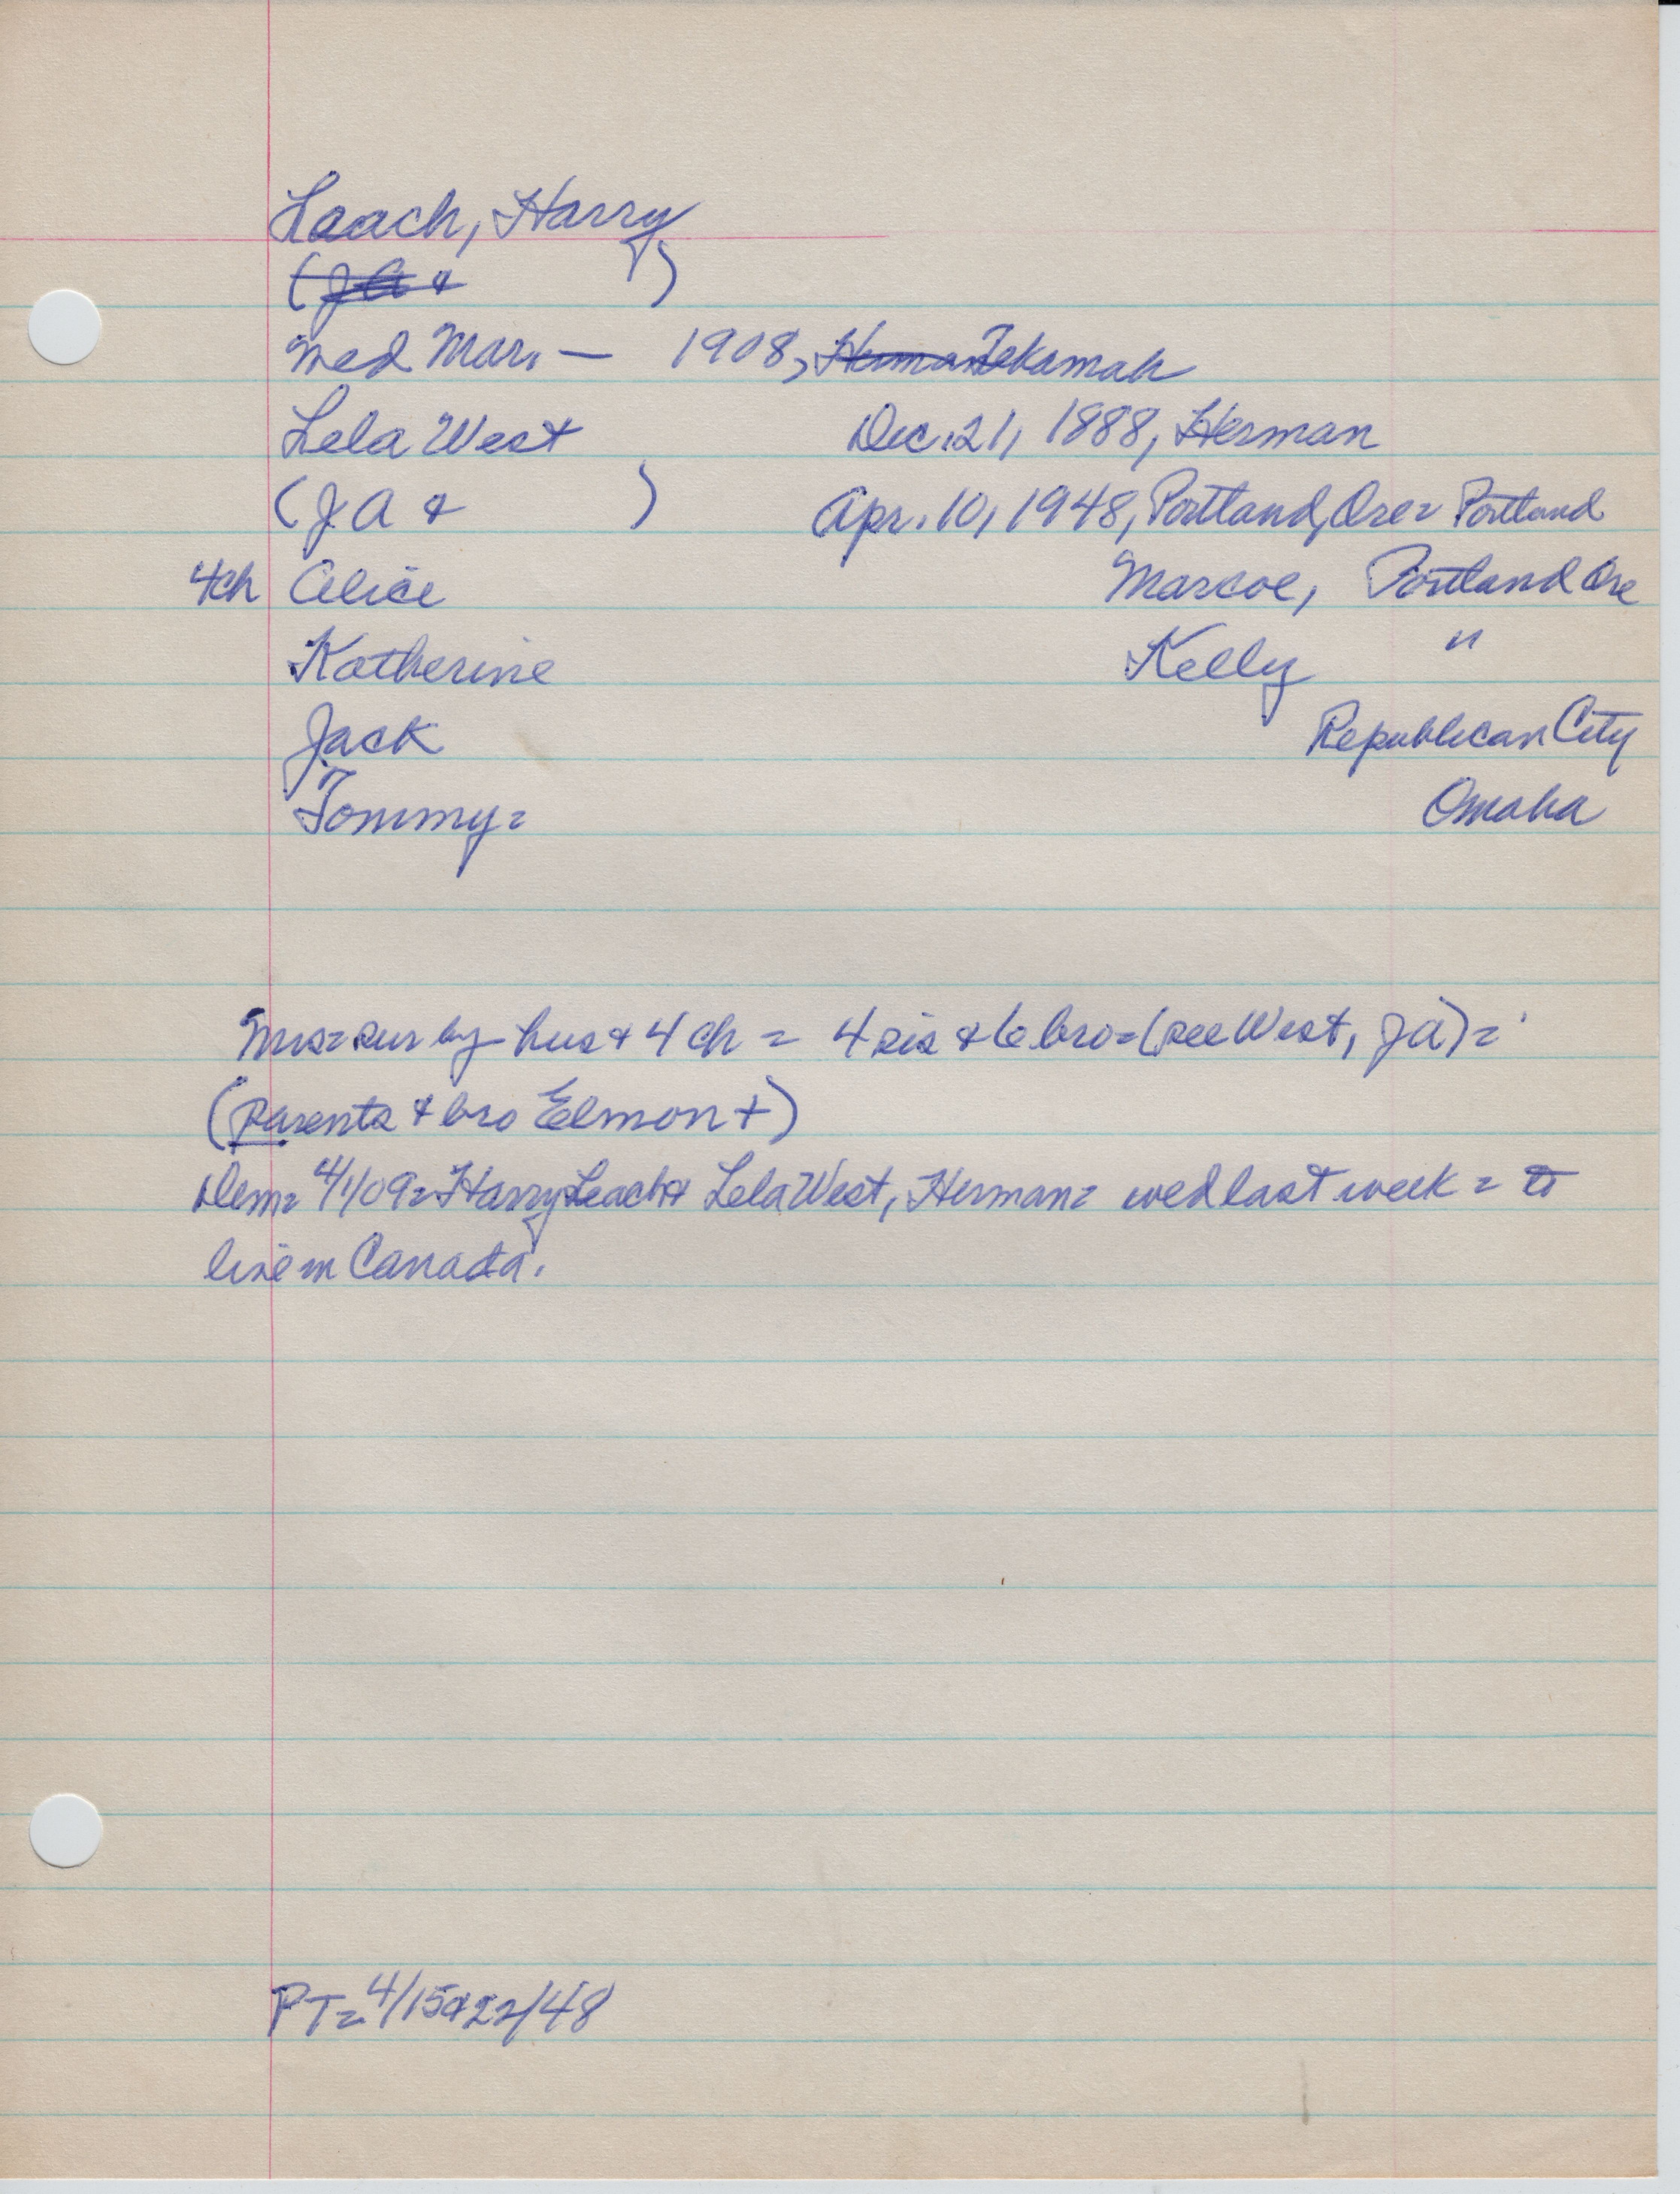 Laach, Harry
(J A & )
Wed Mar. — 1908, Herman Tekamah
Lela West Dec. 21, 1888, Herman
(J A & ) Apr. 10, 1948, Portland, Ore = Portland
4ch Alice Marcoe, Portland Ore
Katherine Kelly "
Jack Republican City
Tommy = Omaha
Mrs = sur by hus & 4 ch = 4 sis & 6 bro = (see West, JA) =
(parents & bro Elmon +)
Dem = 4/1/09 = Harry Leach & Lela West, Herman = wed last week = to
live in Canada.
PT = 4/15 & 22/48